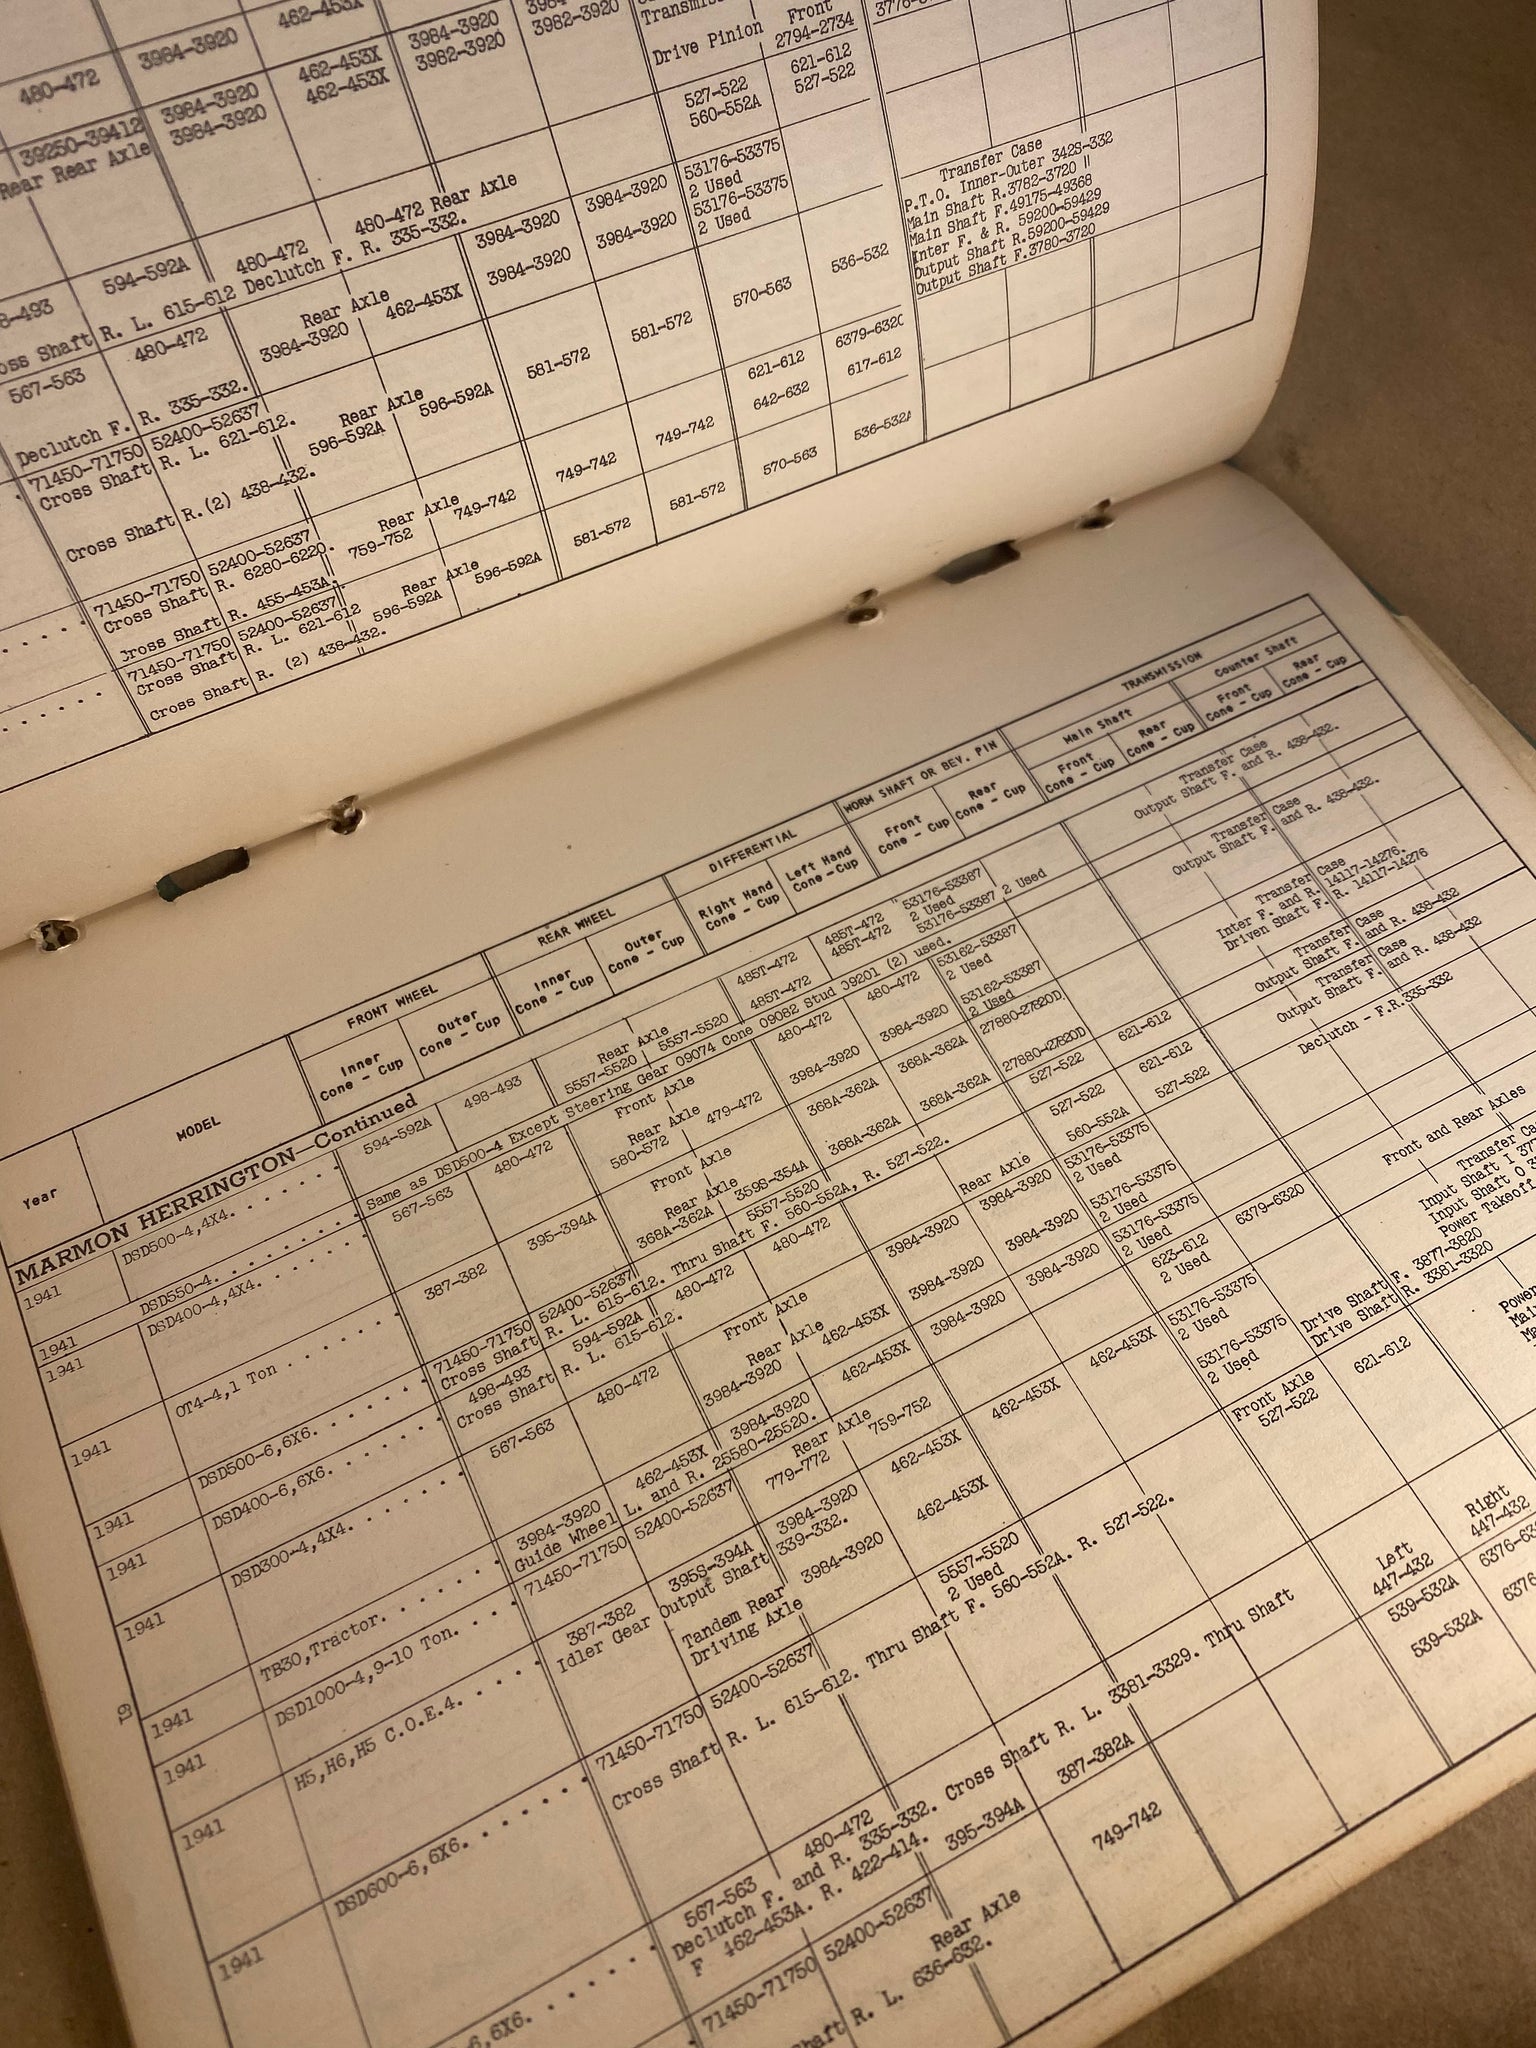 462-453X
3984-3920
3982-3920
480-472
3984-3920
462-453X
3984-3920
3982-3920
Drive Pinion
Front
2794-2734
39250-39412
3984-3920
462-453X
527-522
621-612
Rear Rear Axle
3984-3920
560-552A
527-522
53176-53375
2 Used
53176-53375
2 Used
480-472 Rear Axle
3984-3920
594-592A
480-472
Declutch F. R. 335-332.
3984-3920
3984-3920
Cross Shaft R. L. 615-612
Rear Axle
3984-3920
567-563
480-472
3984-3920
462-453X
536-532
Declutch F. R. 335-332.
581-572
581-572
570-563
Transfer Case
P.T.O. Inner-Outer 342S-332
Main Shaft R.3782-3720 "
Main Shaft F.49175-49368
Inter F. & R. 59200-59429
Output Shaft R.59200-59429
Output Shaft F.3780-3720
71450-71750
52400-52637
Rear Axle
621-612
6379-6320
Cross Shaft R. L. 621-612.
596-592A
596-592A
642-632
617-612
Cross Shaft R.(2) 438-432.
749-742
749-742
71450-71750
52400-52637
Rear Axle
570-563
536-532A
Cross Shaft R. 6280-6220.
759-752
749-742
Cross Shaft R. 455-453A.
581-572
581-572
71450-71750
52400-52637
Rear Axle
Cross Shaft R. L. 621-612
596-592A
596-592A
Cross Shaft R. (2) 438-432.
Year
MODEL
FRONT WHEEL
REAR WHEEL
DIFFERENTIAL
WORM SHAFT OR BEV. PIN
TRANSMISSION
Main Shaft
Counter Shaft
Inner
Cone - Cup
Outer
Cone - Cup
Inner
Cone - Cup
Outer
Cone - Cup
Right Hand
Cone - Cup
Left Hand
Cone - Cup
Front
Cone - Cup
Rear
Cone - Cup
Front
Cone - Cup
Rear
Cone - Cup
Front
Cone - Cup
Rear
Cone - Cup
MARMON HERRINGTON—Continued
1941
DSD500-4,4X4.
594-592A
498-493
Rear Axle
5557-5520
5557-5520
485T-472
485T-472
53176-53387
2 Used
Transfer Case
Output Shaft F. and R. 438-432.
1941
DSD550-4.
Same as DSD500-4 Except Steering Gear 09074 Cone 09082 Stud 09201 (2) used.
485T-472
485T-472
53176-53387 2 Used
Transfer Case
Output Shaft F. and R. 438-432.
1941
DSD400-4,4X4.
567-563
480-472
Front Axle
480-472
480-472
53162-53387
2 Used
Rear Axle
580-572
479-472
3984-3920
3984-3920
53162-53387
2 Used
Transfer Case
Inter F. and R. 14117-14276.
Driven Shaft F. R. 14117-14276
OT4-4,1 Ton
387-382
395-394A
Front Axle
368A-362A
368A-362A
27880-27820D
Rear Axle
368A-362A
359S-354A
368A-362A
368A-362A
27880-27820D
1941
DSD500-6,6X6.
71450-71750
52400-52637
5557-5520
527-522
621-612
Transfer Case
Output Shaft F. and R. 438-432
Cross Shaft R. L. 615-612. Thru Shaft F. 560-552A, R. 527-522.
527-522
621-612
1941
DSD400-6,6X6.
498-493
594-592A
480-472
480-472
Rear Axle
560-552A
527-522
Transfer Case
Output Shaft F. and R. 438-432
Cross Shaft R. L. 615-612.
3984-3920
3984-3920
53176-53375
2 Used
1941
DSD300-4,4X4.
567-563
480-472
Front Axle
3984-3920
3984-3920
53176-53375
2 Used
Declutch - F.R.335-332
Rear Axle
3984-3920
462-453X
3984-3920
3984-3920
53176-53375
2 Used
1941
TB30,Tractor.
3984-3920
462-453X
3984-3920
462-453X
623-612
2 Used
6379-6320
Guide Wheel L. and R. 25580-25520.
Front and Rear Axles
1941
DSD1000-4,9-10 Ton.
71450-71750
52400-52637
Rear Axle
779-772
759-752
1941
H5,H6,H5 C.O.E.4.
387-382
395S-394A
3984-3920
462-453X
462-453X
462-453X
53176-53375
2 Used
Drive Shaft F. 3877-3820
Drive Shaft R. 3381-3320
Idler Gear Output Shaft 339-332.
Tandem Rear
Driving Axle
3984-3920
462-453X
53176-53375
2 Used
1941
DSD600-6,6X6.
71450-71750
52400-52637
5557-5520
2 Used
Front Axle
527-522
621-612
Cross Shaft R. L. 615-612. Thru Shaft F. 560-552A. R. 527-522.
1941
567-563
480-472
Declutch F. and R. 335-332. Cross Shaft R. L. 3381-3329. Thru Shaft
F 462-453A. R. 422-414.
395-394A
387-382A
Left
447-432
Right
447-432
71450-71750
52400-52637
Rear Axle
749-742
539-532A
539-532A
R. L. 636-632.
19